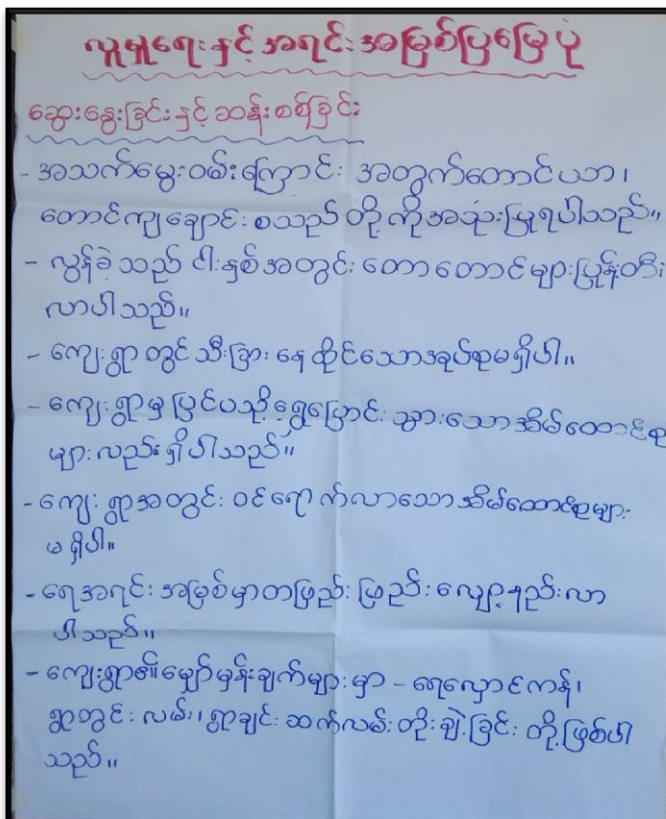 လူမှုရေးနှင့် အရင်းအမြစ်ပြမြေပုံ
ဆွေးနွေးခြင်းနှင့် ဆန်းစစ်ခြင်း
- အသက်မွေးဝမ်းကြောင်း အတွက်တောင်ယာ၊
တောင်ကျချောင်း စသည်တို့ကိုအသုံးပြုရပါသည်။
- လွန်ခဲ့သည် ငါးနှစ်အတွင်း တောတောင်များပြုန်းတီး
လာပါသည်။
- ကျေးရွာတွင် သီးခြား နေထိုင်သောအုပ်စုမရှိပါ။
- ကျေးရွာမှ ပြင်ပသို့ ရွှေ့ပြောင်းသွားသောအိမ်ထောင်စု
များလည်းရှိပါသည်။
- ကျေးရွာအတွင်း ဝင်ရောက်လာသောအိမ်ထောင်စုများ
မရှိပါ။
- ရေအရင်းအမြစ်မှာတဖြည်းဖြည်းလျော့နည်းလာ
ပါသည်။
- ကျေးရွာ၏မျှော်မှန်းချက်များမှာ - ရေလှောင်ကန်၊
ရွာတွင်းလမ်း၊ ရွာချင်းဆက်လမ်းတိုးချဲ့ခြင်းတို့ဖြစ်ပါ
သည်။